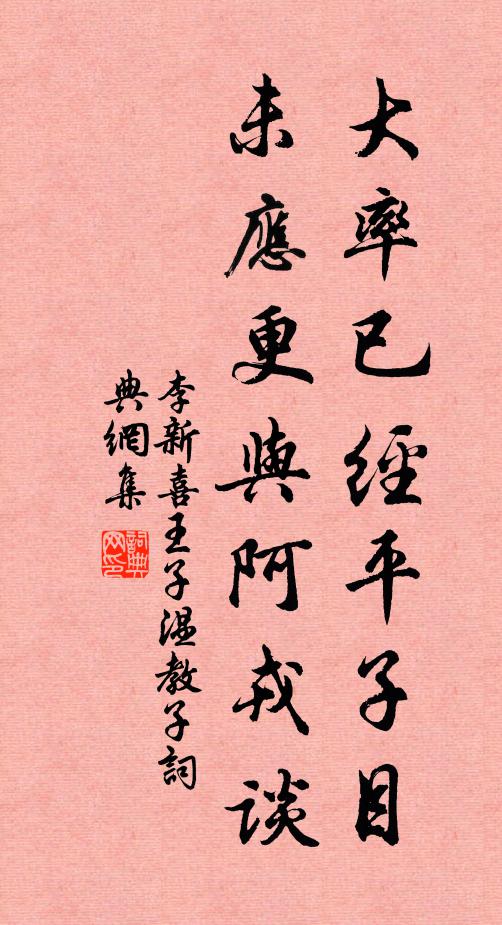 大率已經平子目
未應更與阿戎談
李新喜王子溫教子詞
典網集
詞典
网印